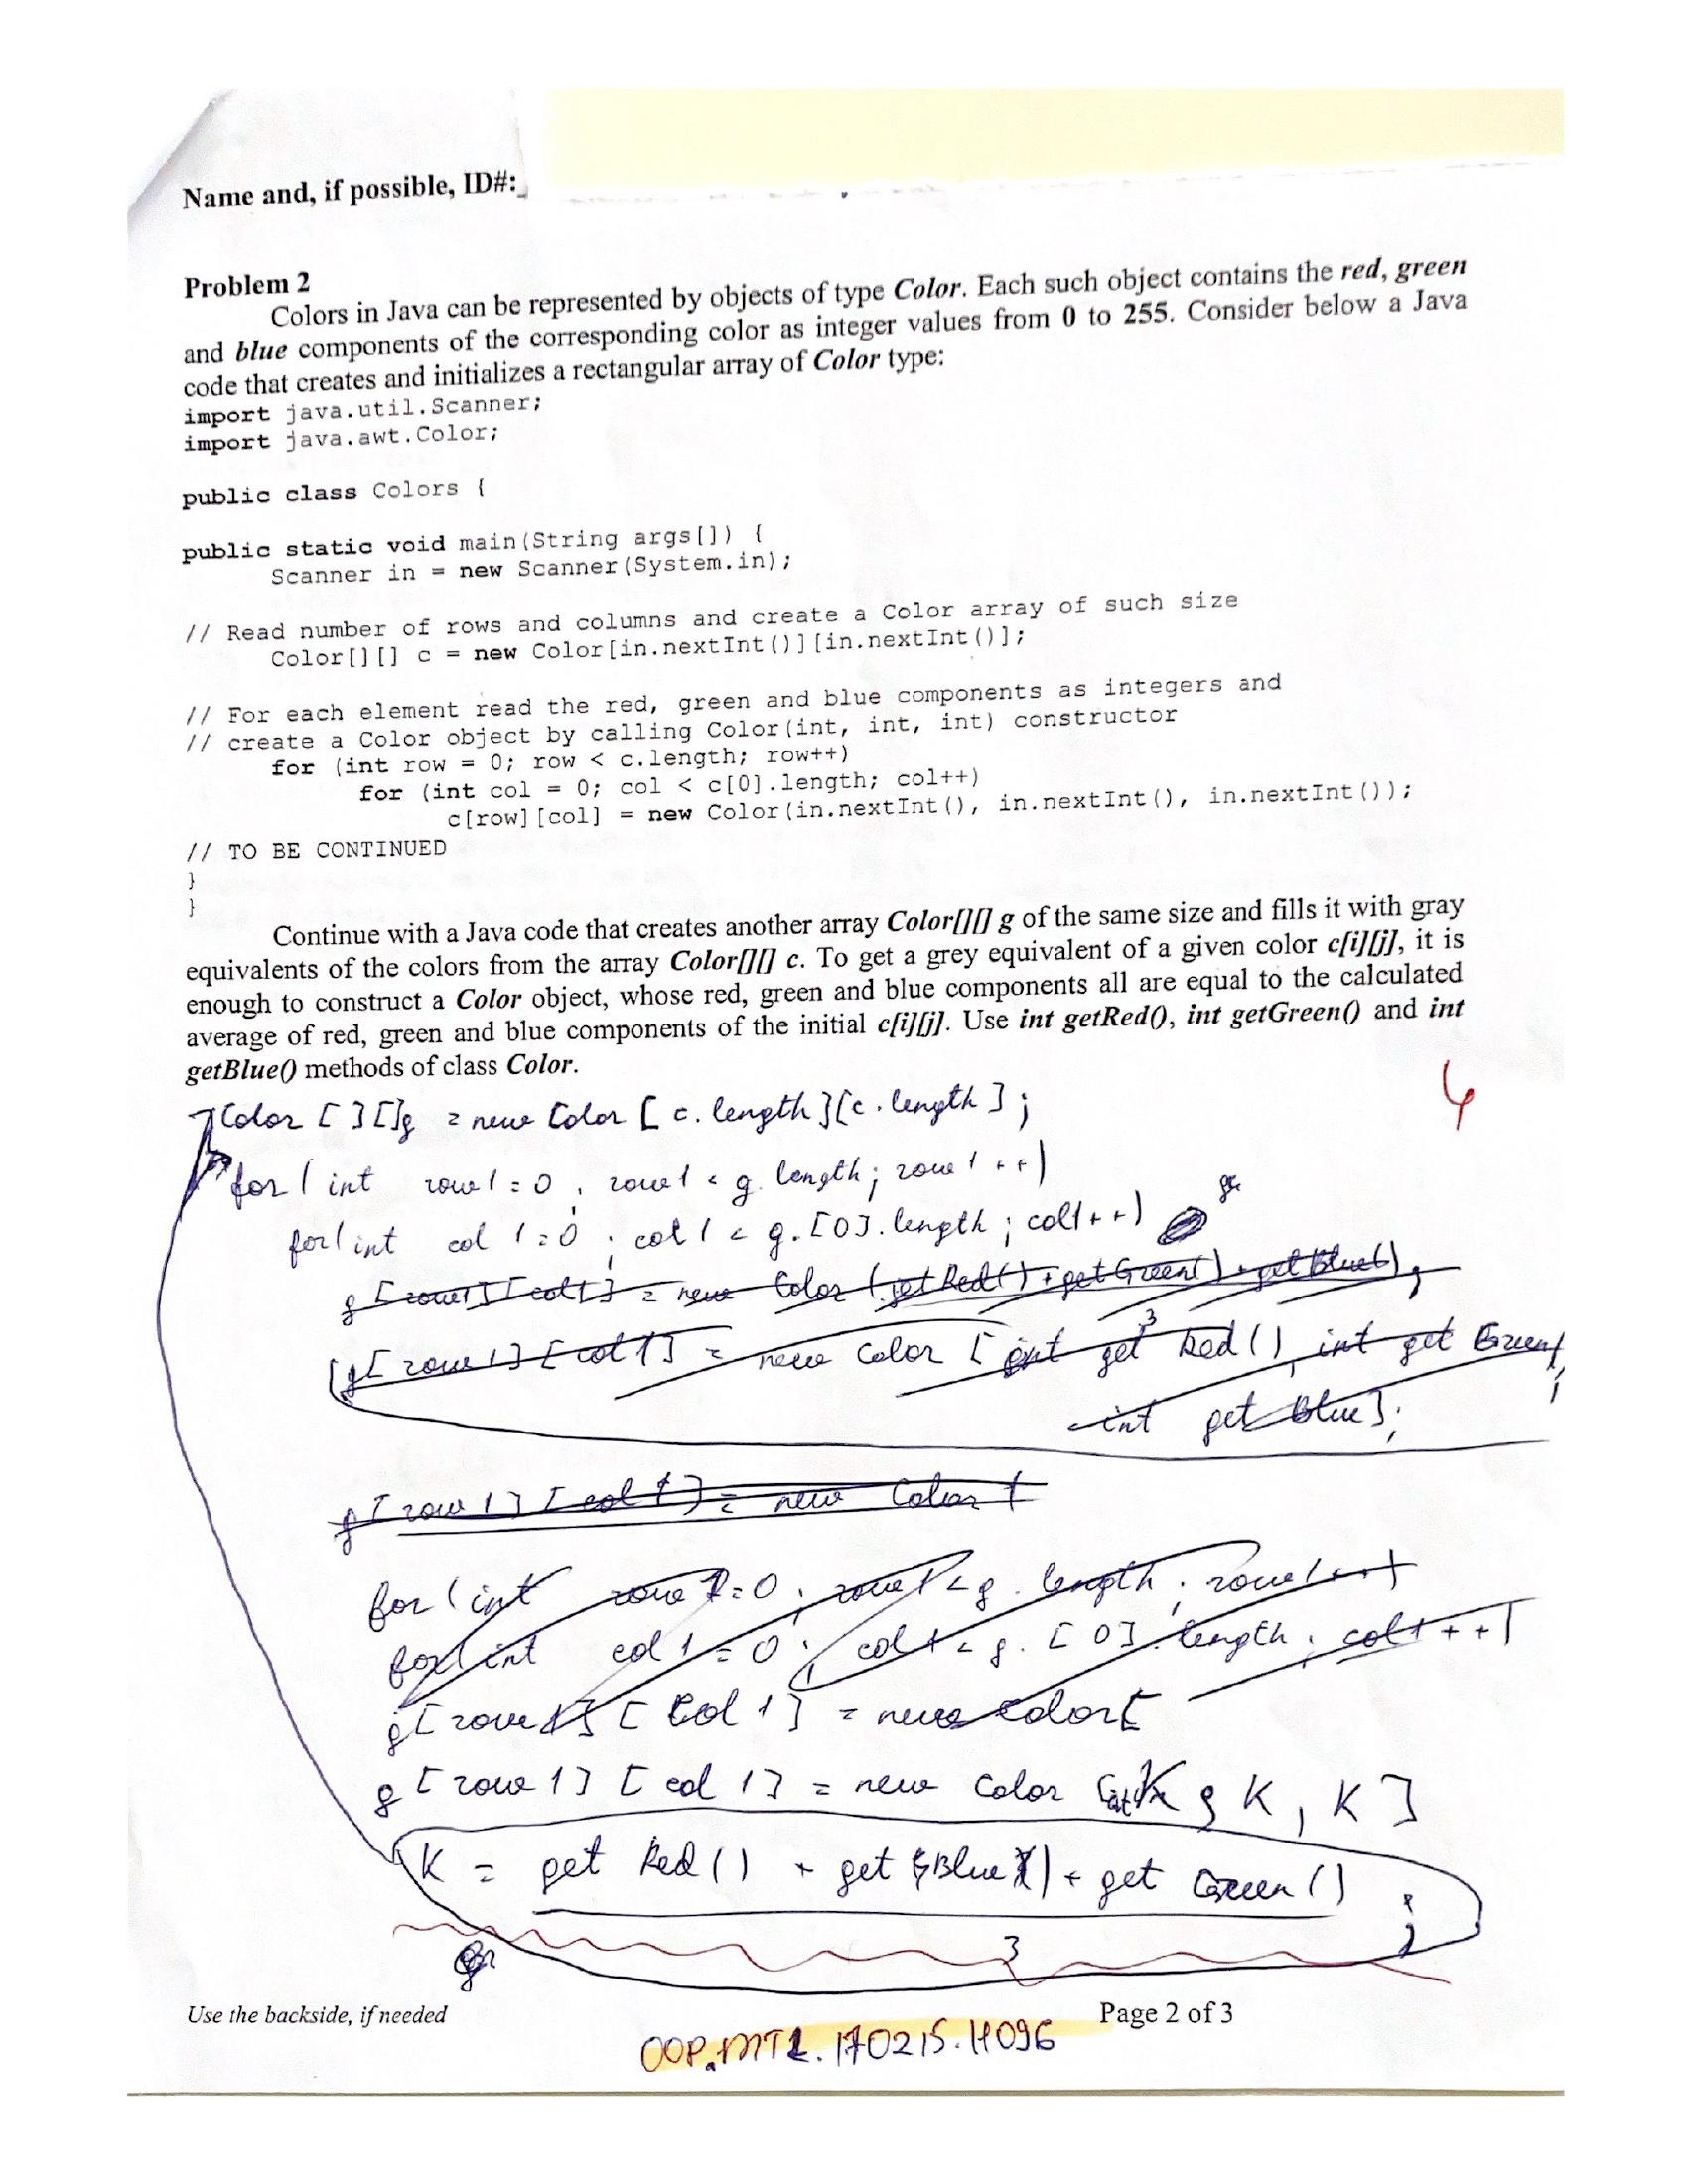 Name and, if possible, ID#:
Problem 2
Colors in Java can be represented by objects of type Color. Each such object contains the red, green
and blue components of the corresponding color as integer values from 0 to 255. Consider below a Java
code that creates and initializes a rectangular array of Color type:
import java.util.Scanner;
import java.awt.Color;
public class Colors {
public static void main(String args[]) {
Scanner in = new Scanner(System.in);
// Read number of rows and columns and create a Color array of such size
Color[][] c = new Color[in.nextInt()][in.nextInt()];
// For each element read the red, green and blue components as integers and
// create a Color object by calling Color(int, int, int) constructor
for (int row = 0; row < c.length; row++)
for (int col = 0; col < c[0].length; col++)
c[row][col] = new Color(in.nextInt(), in.nextInt(), in.nextInt());
// TO BE CONTINUED
}
}
Continue with a Java code that creates another array Color[][] g of the same size and fills it with gray
equivalents of the colors from the array Color[][] c. To get a grey equivalent of a given color c[i][j], it is
enough to construct a Color object, whose red, green and blue components all are equal to the calculated
average of red, green and blue components of the initial c[i][j]. Use int getRed(), int getGreen() and int
getBlue() methods of class Color.
Color [ ] [ ]g = new Color [ c. length ] [c . length ] ;
for ( int row 1 = 0 ; row 1 < g. length ; row 1 ++)
for ( int col 1 = 0 ; col 1 < g. [0]. length ; col1 ++)
g [row1] [col1] = new Color (getRed() + getGreen() + getBlue() ;
3
(g[ row 1] [ col 1] = new Color [ int get Red ( ) , int get Green ,
int get Blue ] ;
g [ row 1] [ col 1 ] = new Color (
for ( int row 1 = 0 ; row 1 < g . length ; row 1 ++)
for ( int col 1 = 0 ; col 1 < g. [ 0 ] . length ; col 1 ++)
g[ row 1] [ Col 1 ] = new Color [
g [ row 1] [ col 1] = new Color K , K , K ]
K = get Red ( ) + get Blue ( ) + get Green ( ) ;
3
Use the backside, if needed
Page 2 of 3
OOP.MT1.170215.H096